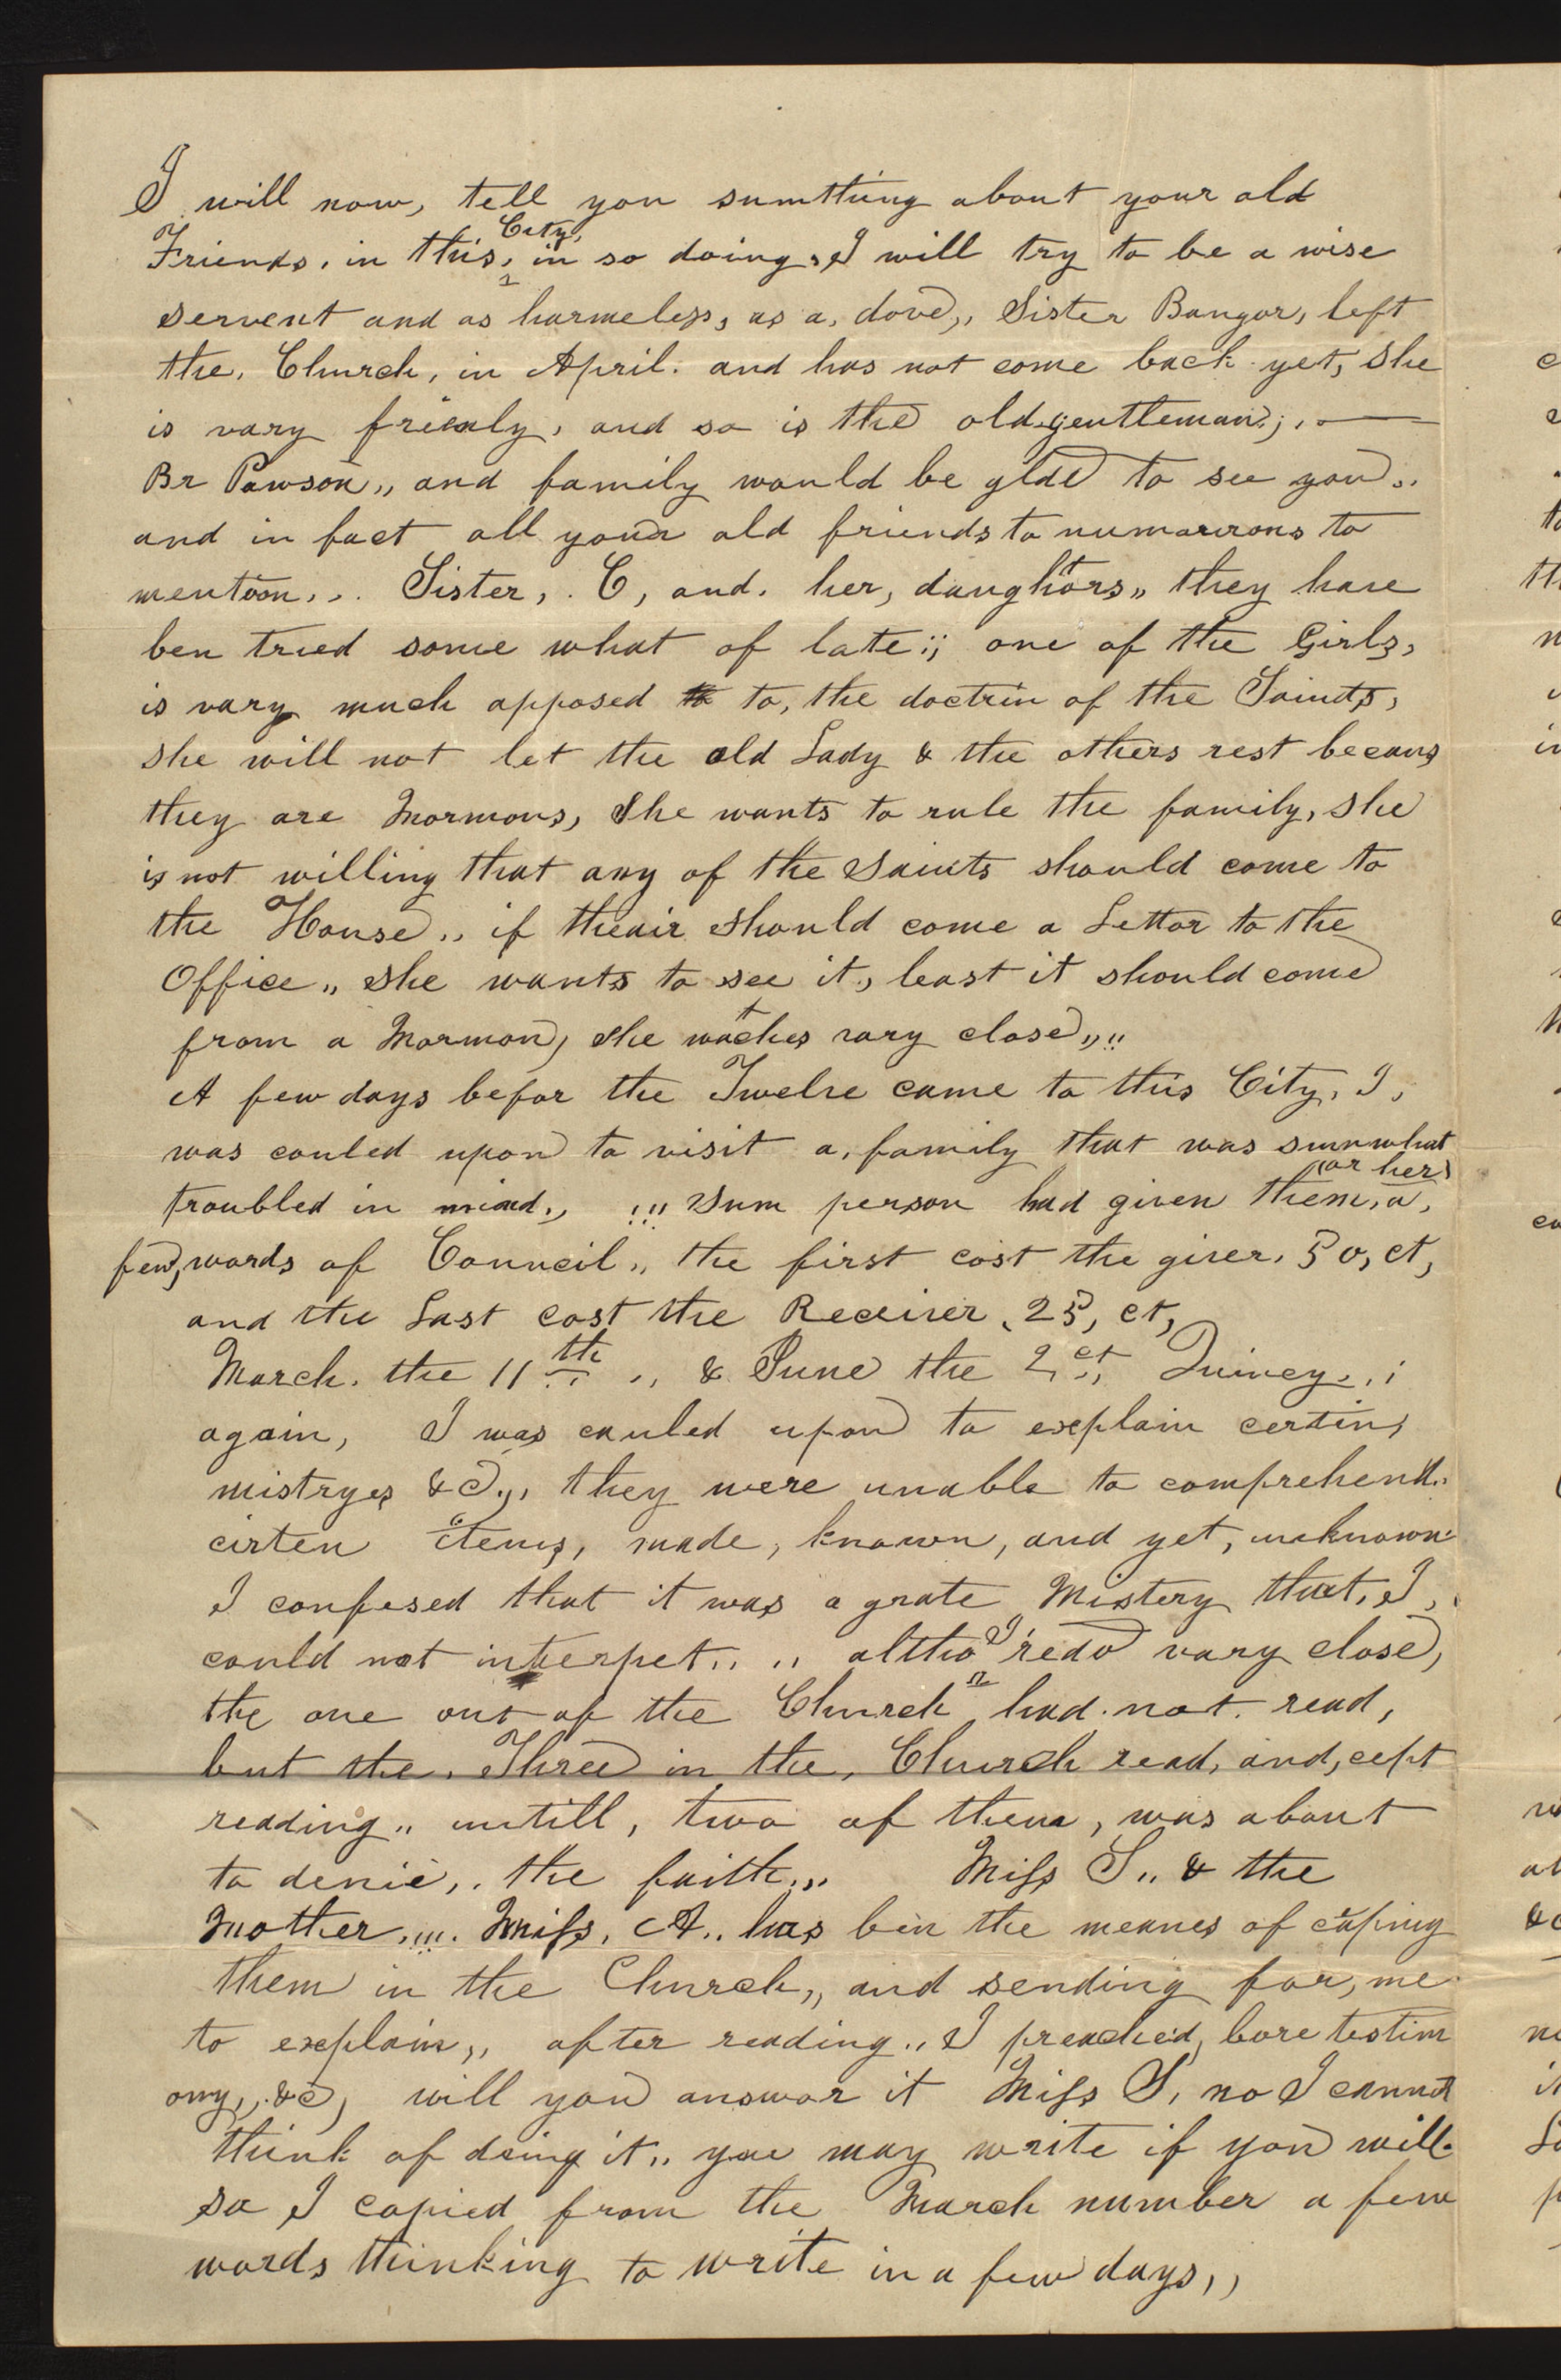 I will now, tell you sumthing about your old
Friends, in this, City, in so doing, I will try to be a wise
servent and as harmeless, as a, dove,, Sister Bangor, left
the, Church, in April. and has not come back yet, She
is vary frienly, and so is the old gentleman;,
Br Pawson,, and family would be glde to see you,.
and in fact all your old friends to numarrous to
mention,.. Sister,. C, and. her, daughtors,, they have
ben tried some what of late;; one of the Girls,
is vary much opposed to to, the doctrin of the Saints,
she will not let the old Lady & the others rest becaus
they are Mormons, She wants to rule the family, she
is not willing that any of the Saints should come to
the House,, if theair should come a Lettor to the
Office,, she wants to see it, least it should come
from a Mormon, she watches vary close,,,,
A few days befor the Twelve came to this City, I,
was couled upon to visit a, family that was sumwhat
troubled in mind,, !!! Sum person had given them, (or her) a,
few, words of Council,, the first cost the giver. 50, ct,
and the Last cost the Receiver, 25, ct,
March. the 11th ,, & June the 2et Quincy,,;
again, I was cauled upon to explain certin,
mistryes &c,,, they were unable to comprehend,.
cirten items, made, known, and yet, unknown
I confesed that it was a grate Mistery that, I,
could not interpet,. ,, altho I redd vary close,
the one out of the Church had. not. read,
but the, Three in the, Church read, and, cept
reading,, untill, two of them, was about
to denie,. the faith,,, Miss S,, & the
Mother,!!!. Miss, A,. has bin the meanes of caping
them in the Church,, and sending for, me
to explain,, after reading,, I preached, bore testim
ony,, &c, will you answor it Miss S, no I cannot
think of doing it,, you may write if you will
so I copied from the March number a few
words thinking to write in a few days,,